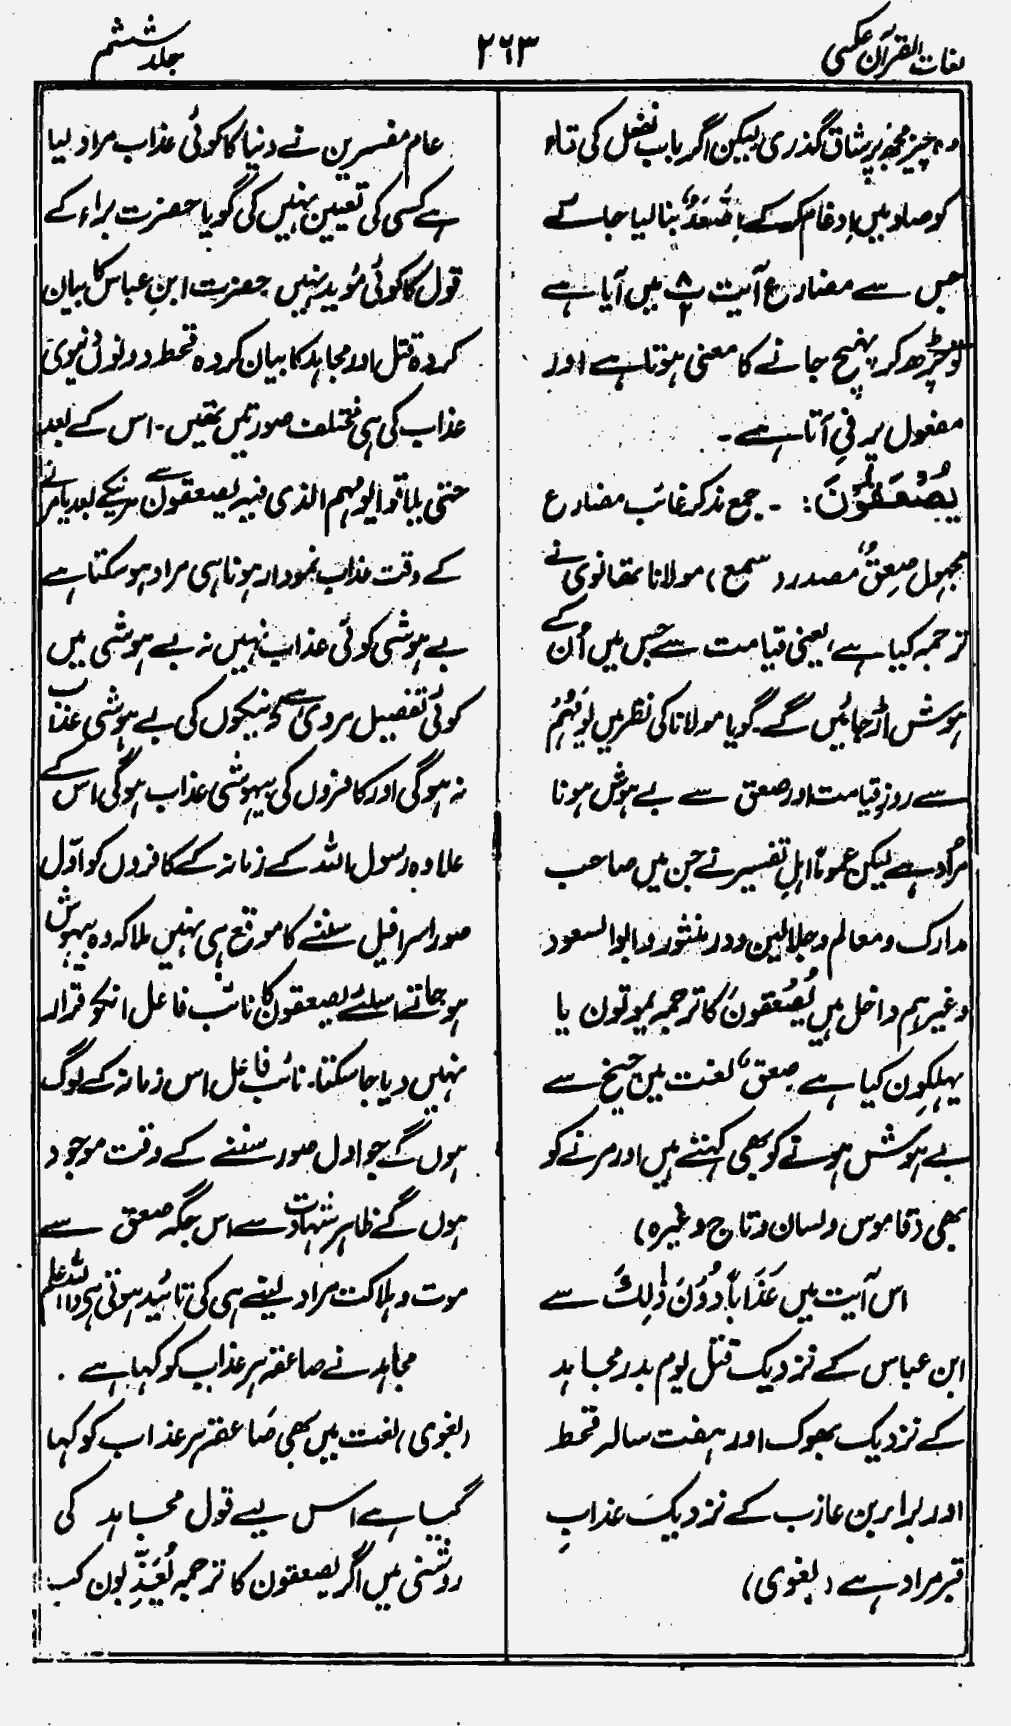 لغات القرآن عکسی
۲۶۳
جلد ششم
وہ چیز مجھ پر شاق گذری لیکن اگر باب تفعل کی تاء
کو صاد میں ادغام کر کے اِصَّعَّدَ بنا لیا جائے
جس سے مضارع آیت ۸/۲ میں آیا ہے
تو چڑھ کر پہنچ جانے کا معنی ہوتا ہے اور
مفعول پر فی آتا ہے ۔
یُصْعَقُوْنَ: ۔ جمع مذکر غائب مضارع
مجہول صعقٌ مصدر (سمع) مولانا تھانوی نے
ترجمہ کیا ہے، یعنی قیامت سے جس میں اُن کے
ہوش اڑ جائیں گے۔ گویا مولانا کی نظر میں یَوْمَہُمْ
سے روزِ قیامت اور صعق سے بے ہوش ہونا
مراد ہے لیکن عموماً اہلِ تفسیر نے جن میں صاحب
مدارک و معالم و جلالین و در منثور و ابوالسعود
وغیرہم داخل ہیں یُصْعَقُونَ کا ترجمہ یموتون یا
یہلکون کیا ہے صعقٌ لغت میں چیخ سے
بے ہوش ہونے کو بھی کہتے ہیں اور مرنے کو
بھی (قاموس ولسان وتاج وغیرہ)
اس آیت میں عَذَابًا دُوْنَ ذٰلِکَ سے
ابن عباس کے نزدیک قتل یوم بدر مجاہد
کے نزدیک بھوک اور ہفت سالہ قحط
اور براء بن عازب کے نزدیک عذابِ
قبر مراد ہے (بغوی)
عام مفسرین نے دنیا کا کوئی عذاب مراد لیا
ہے کسی کی تعیین نہیں کی گویا حضرت براء کے
قول کا کوئی مؤید نہیں حضرت ابنِ عباس کا بیان
کردہ قتل اور مجاہد کا بیان کردہ قحط دونوں دنیوی
عذاب کی ہی مختلف صورتیں تھیں۔ اس کے بعد
حتی یلاقوا یومہم الذی فیہ یصعقون سے مرنیکے بعد یا مرنے
کے وقت عذاب نمودار ہونا ہی مراد ہوسکتا ہے
بے ہوشی کوئی عذاب نہیں نہ بے ہوشی میں
کوئی تفصیل مروی ہے کہ نیکوں کی بے ہوشی عذاب
نہ ہوگی اور کافروں کی بیہوشی عذاب ہوگی اس کے
علاوہ رسول اللہ کے زمانہ کے کافروں کو اوّل
صور اسرافیل سننے کا موقع ہی نہیں ملا کہ وہ بیہوش
ہو جاتے اسلئے یصعقون کا نائب فاعل انکو قرار
نہیں دیا جاسکتا۔ نائب فاعل اس زمانہ کے لوگ
ہوں گے جو اول صور سننے کے وقت موجود
ہوں گے ظاہر شہادت سے اس جگہ صعق سے
موت و ہلاکت مراد لینے ہی کی تائید ہوتی ہے واللہ اعلم
مجاہد نے صاعقہ ہر عذاب کو کہا ہے ۔
(بغوی) لغت میں بھی صَاعقہ ہر عذاب کو کہا
گیا ہے اس لیے قول مجاہد کی
روشنی میں اگر یصعقون کا ترجمہ یُعَذَّبون کیا